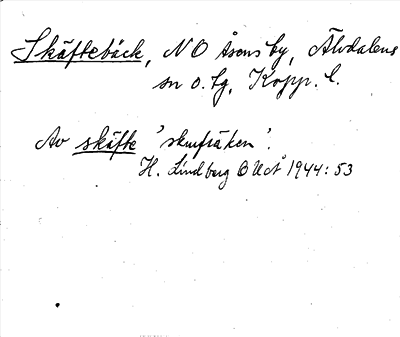 Skäftebäck, NO Åsens by, Älvdalens
sn o. tg, Kopp. l.
Av skäfte 'skurfräken'.
H. Lindberg BUoÅ 1944: 53